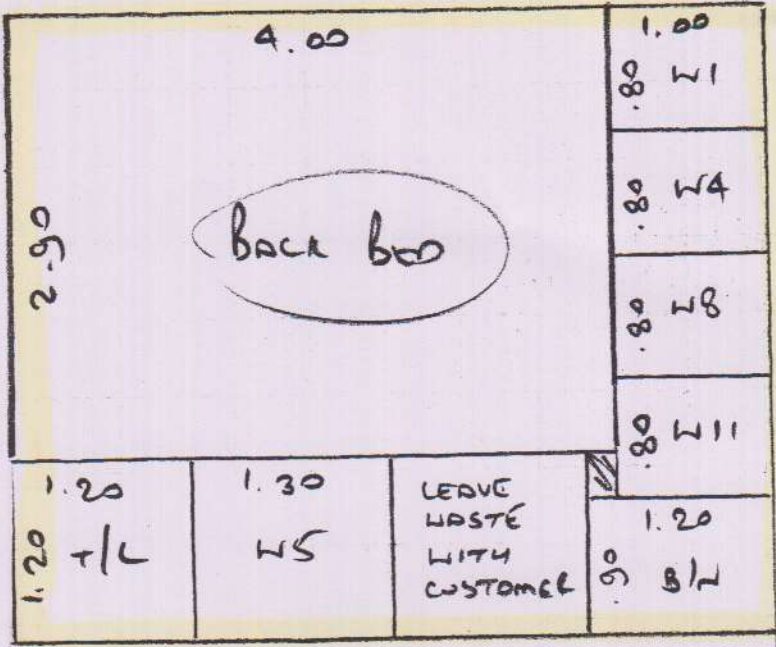 4.00
2.90
BACK BED
1.00
.80 W1
.80 W4
.80 W8
.80 W11
1.20
1.20 T/L
1.30
W5
LEAVE
WASTE
WITH
CUSTOMER
1.20
.90 B/W